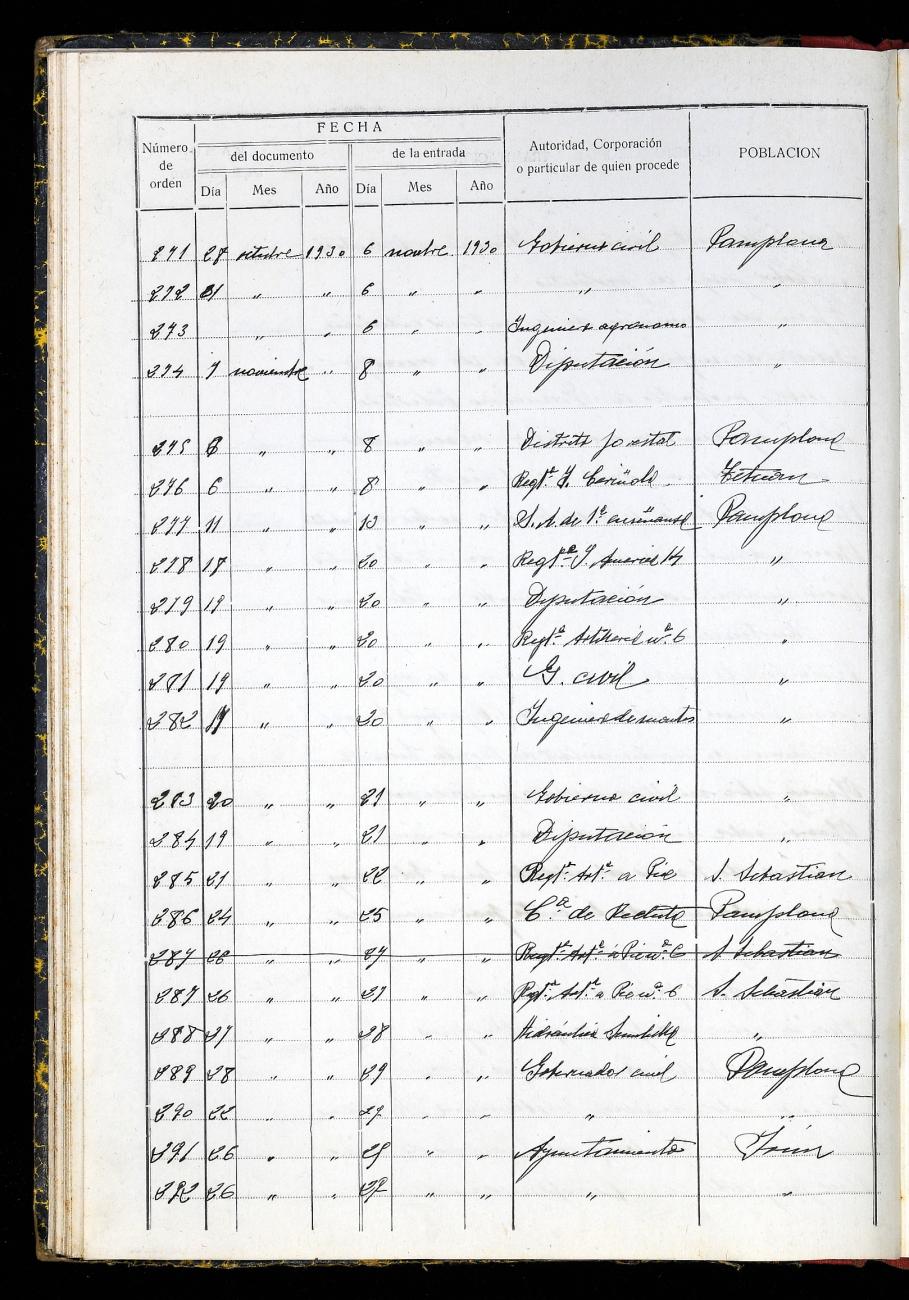 FECHA
Número de orden | del documento | de la entrada | Autoridad, Corporación o particular de quien procede | POBLACION
Día | Mes | Año | Día | Mes | Año
271 28 octubre 1930 6 novbre. 1930 Gobierno civil Pamplona
272 31 " " 6 " " " "
273 " " 6 " " Ingeniero agronomo "
274 7 noviembre " 8 " " Diputación "
275 6 " " 8 " " Distrito forestal Pamplona
276 6 " " 8 " " Regtº. I. Ceriñola Tetuan
277 11 " " 13 " " S. A. de 1ª enseñanza Pamplona
278 17 " " 20 " " Regtº I. America 14 "
279 19 " " 20 " " Diputación "
280 19 " " 20 " " Regtº Artilleria nº. 6 "
281 19 " " 20 " " G. civil "
282 19 " " 20 " " Ingeniero de montes "
283 20 " " 21 " " Gobierno civil "
284 19 " " 21 " " Diputación "
285 21 " " 22 " " Regtº. Artª. a Pie S. Sebastian
286 24 " " 25 " " Cª. de Recluta Pamplona
287 28 " " 27 " " Regtº. Artª a Pie nº. 6 S. Sebastian
287 26 " " 27 " " Rgtº. Artª a Pie nº. 6 S. Sebastian
288 27 " " 28 " " "
289 28 " " 29 " " Gobernador civil Pamplona
290 22 " " 29 " " " "
291 26 " " 29 " " Ayuntamiento Irún
292 26 " " 29 " " " "